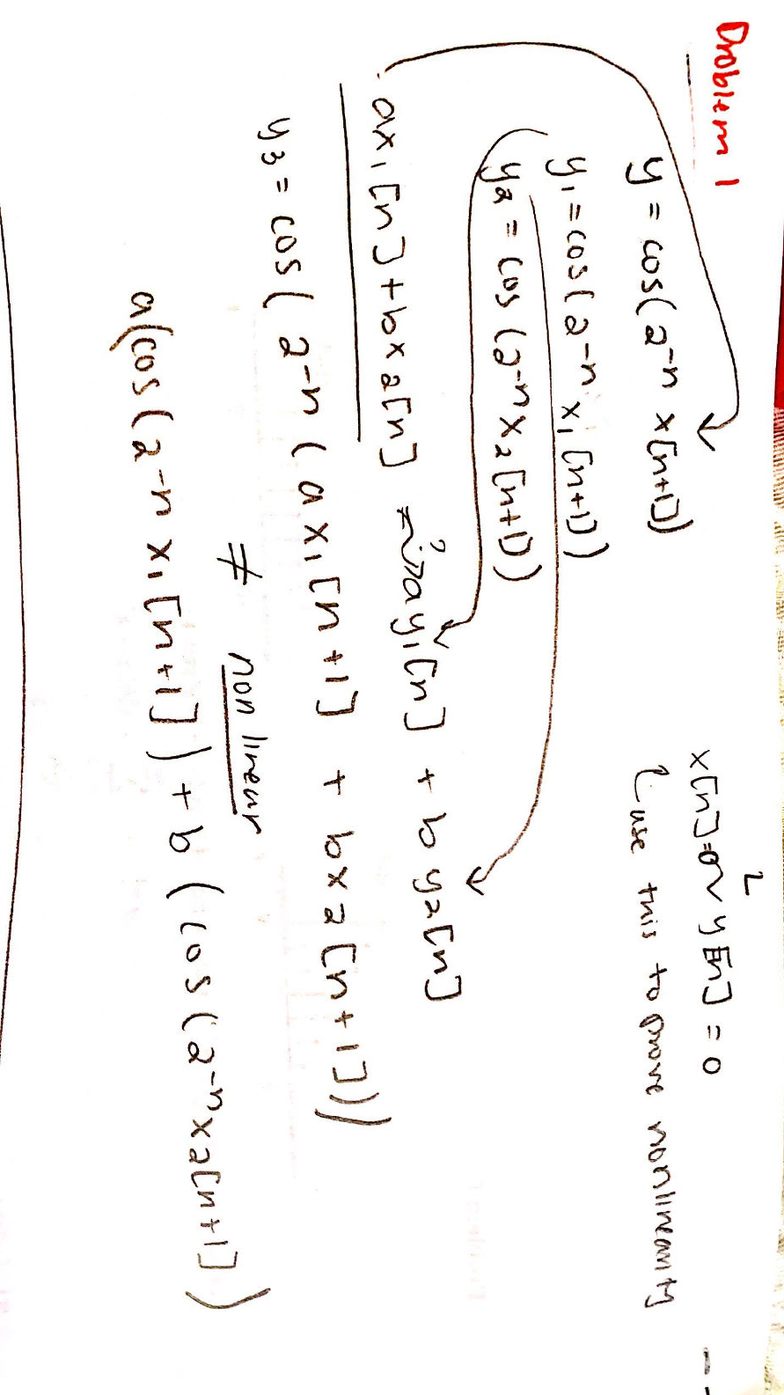 Problem 1
y = cos(2^-n x[n+1])
x[n]=0 ~ y[n] = 0
use this to prove nonlinearity
y₁ = cos(2^-n x₁[n+1])
y₂ = cos(2^-n x₂[n+1])
ax₁[n] + bx₂[n] =? ay₁[n] + by₂[n]
y₃ = cos(2^-n (ax₁[n+1] + bx₂[n+1]))
≠ non linear
a(cos(2^-n x₁[n+1]) + b(cos(2^-n x₂[n+1])